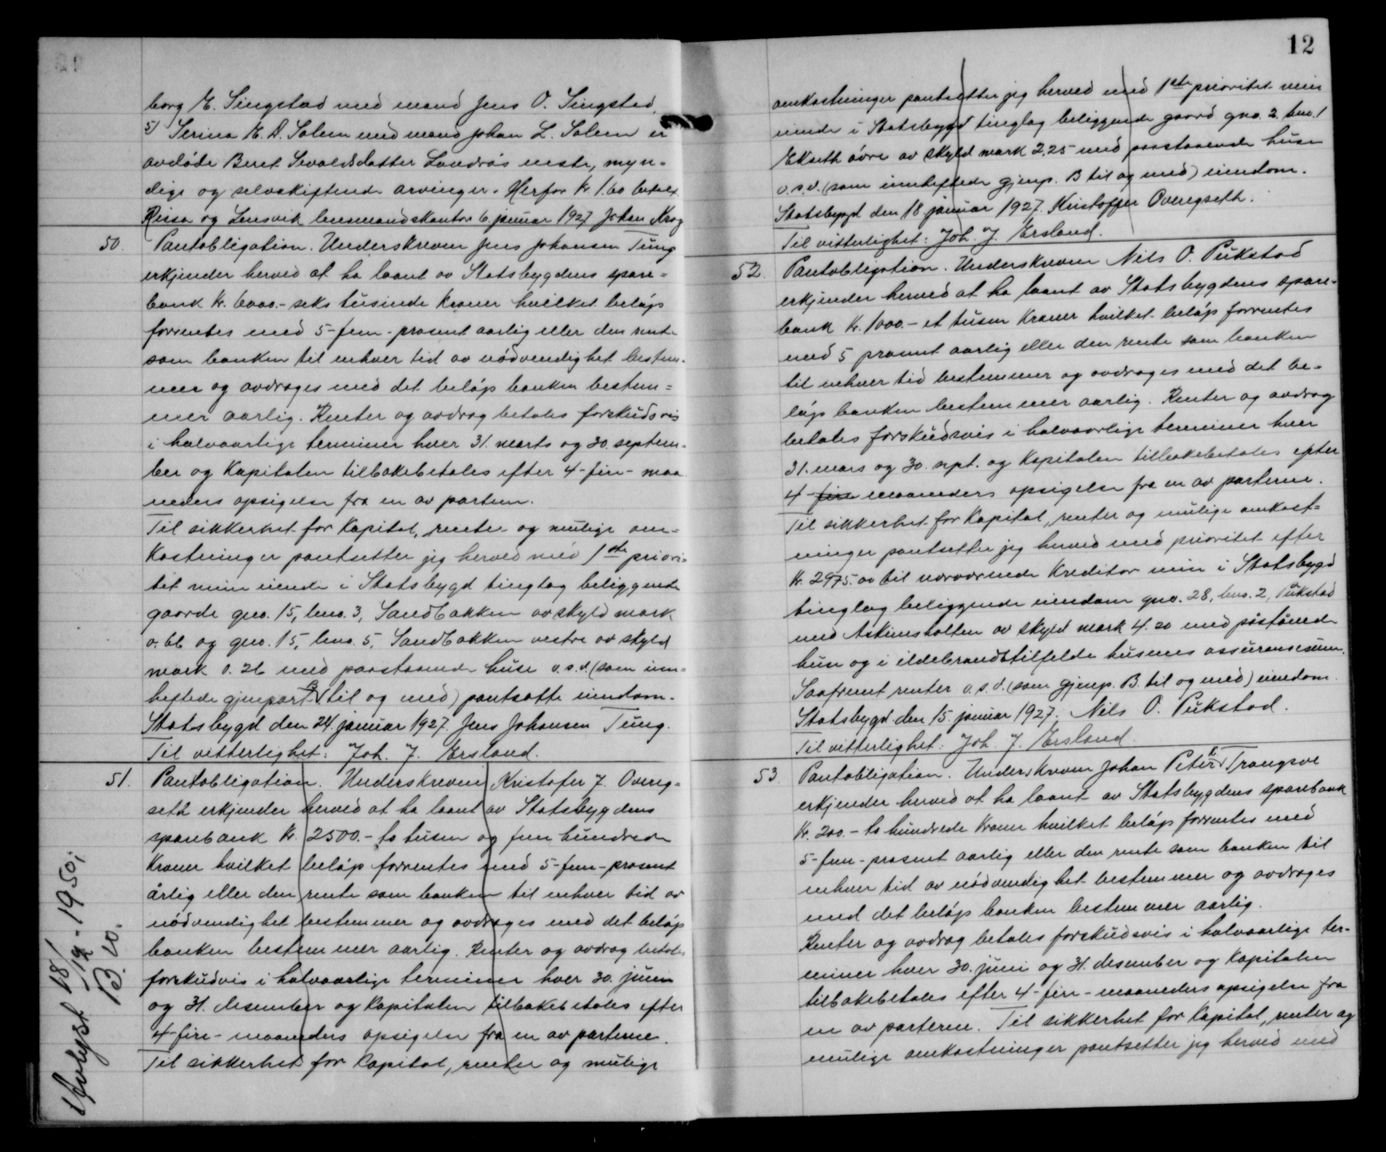 borg E. Singstad med mand Jens O. Singstad
5) Serina E. D. Solem med mand Johan L. Solem er
avdöde Beret Sevaldsdatter Landrös eneste, myn-
dige og selvskiftende arvinger. Herfor kr 1.60 betalt.
Rissa og Lensvik lensmandskontor 6 januar 1927 Johan Krog
50. Pantobligation. Underskreven Jens Johansen Tung
erkjender herved at ha laant av Statsbygdens spare=
bank kr. 6000.- seks tusinde kroner hvilket belöp
forrentes med 5-fem- prosent aarlig eller den rente
som banken til enhver tid av nödvendighet bestem-
mer og avdrages med det belöp banken bestem=
mer aarlig. Renter og avdrag betales forskudsvis
i halvaarlige terminer hver 31. marts og 30. septem-
ber og kapitalen tilbakebetales efter 4-fire- maa
neders opsigelse fra en av partene.
Til sikkerhet for kapital, renter og mulige om=
kostninger pantsetter jeg herved med 1ste priori-
tet min eiende i Statsbygd tinglag beliggende
gaarde gno. 15, bno. 3, Sandbakken av skyld mark
0.66 og gno. 15, bno. 5, Sandbakken vestre av skyld
mark 0.26 med paastaaende huse o.s.v. (som inn=
heftede gjenpart B til og med) pantsatte eiendom.
Statsbygd den 24 januar 1927. Jens Johansen Tung.
Til vitterlighet: Joh. J. Ersland
51. Pantobligation. Underskreven Kristofer J. Overeg=
seth erkjender herved at ha laant av Statsbygdens
sparebank kr. 2500.- to tusen og fem hundrede
kroner hvilket belöp forrentes med 5-fem-prosent
årlig eller den rente som banken til enhver tid av
nödvendighet bestemmer og avdrages med det belöp
banken bestemmer aarlig. Renter og avdrag betales
forskudsvis i halvaarlige terminer hver 30. juni
og 31. desember og kapitalen tilbakebetales efter
4-fire- maaneders opsigelse fra en av partene.
Til sikkerhet for kapital, renter og mulige
Avlyst 18/12-1950;
12
omkostninger pantsetter jeg herved med 1ste prioritet min
eiende i Statsbygd tinglag beliggende gaard gno. 2, bno. 1
Ekseth övre av skyld mark 2.25 med paastaaende huse
o.s.v. (som innheftede gjenp. B til og med) eiendom.
Statsbygd den 18 januar 1927. Kristoffer Overegseth.
Til vitterlighet: Joh. J. Ersland.
52. Pantobligation. Underskreven Nils O. Pukstad
erkjender herved at ha laant av Statsbygdens spare-
bank kr. 1000.- et tusen kroner hvilket belöp forrentes
med 5 prosent aarlig eller den rente som banken
til enhver tid bestemmer og avdrages med det be-
löp banken bestemmer aarlig. Renter og avdrag
betales forskudsvis i halvaarlige terminer hver
31. mars og 30. sept. og kapitalen tilbakebetales efter
4-fire maaneders opsigelse fra en av partene.
Til sikkerhet for kapital, renter og mulige omkost=
ninger pantsetter jeg herved med prioritet efter
kr. 2975 av til nærværende kreditor min i Statsbygd
tinglag beliggende eiendom gno. 28, bno. 2, Pukstad
med Askimsholten av skyld mark 4.20 med påstående
huse og i ildebrandstilfelde husenes assuransesum.
Saafremt renter o.s.v. (som gjenp. B. til og med) eiendom.
Statsbygd den 15 januar 1927. Nils O. Pukstad.
Til vitterlighet: Joh. J. Ersland.
53. Pantobligation. Underskreven Johan Peter Trangsve
erkjender herved at ha laant av Statsbygdens sparebank
kr. 200.- to hundrede kroner hvilket belöp forrentes med
5-fem-prosent aarlig eller den rente som banken til
enhver tid av nödvendighet bestemmer og avdrages
med det belöp banken bestemmer aarlig.
Renter og avdrag betales forskudsvis i halvaarlige ter-
miner hver 30. juni og 31. desember og kapitalen
tilbakebetales efter 4-fire-maaneders opsigelse fra
en av partene. Til sikkerhet for kapital, renter og
mulige omkostninger pantsetter jeg herved med